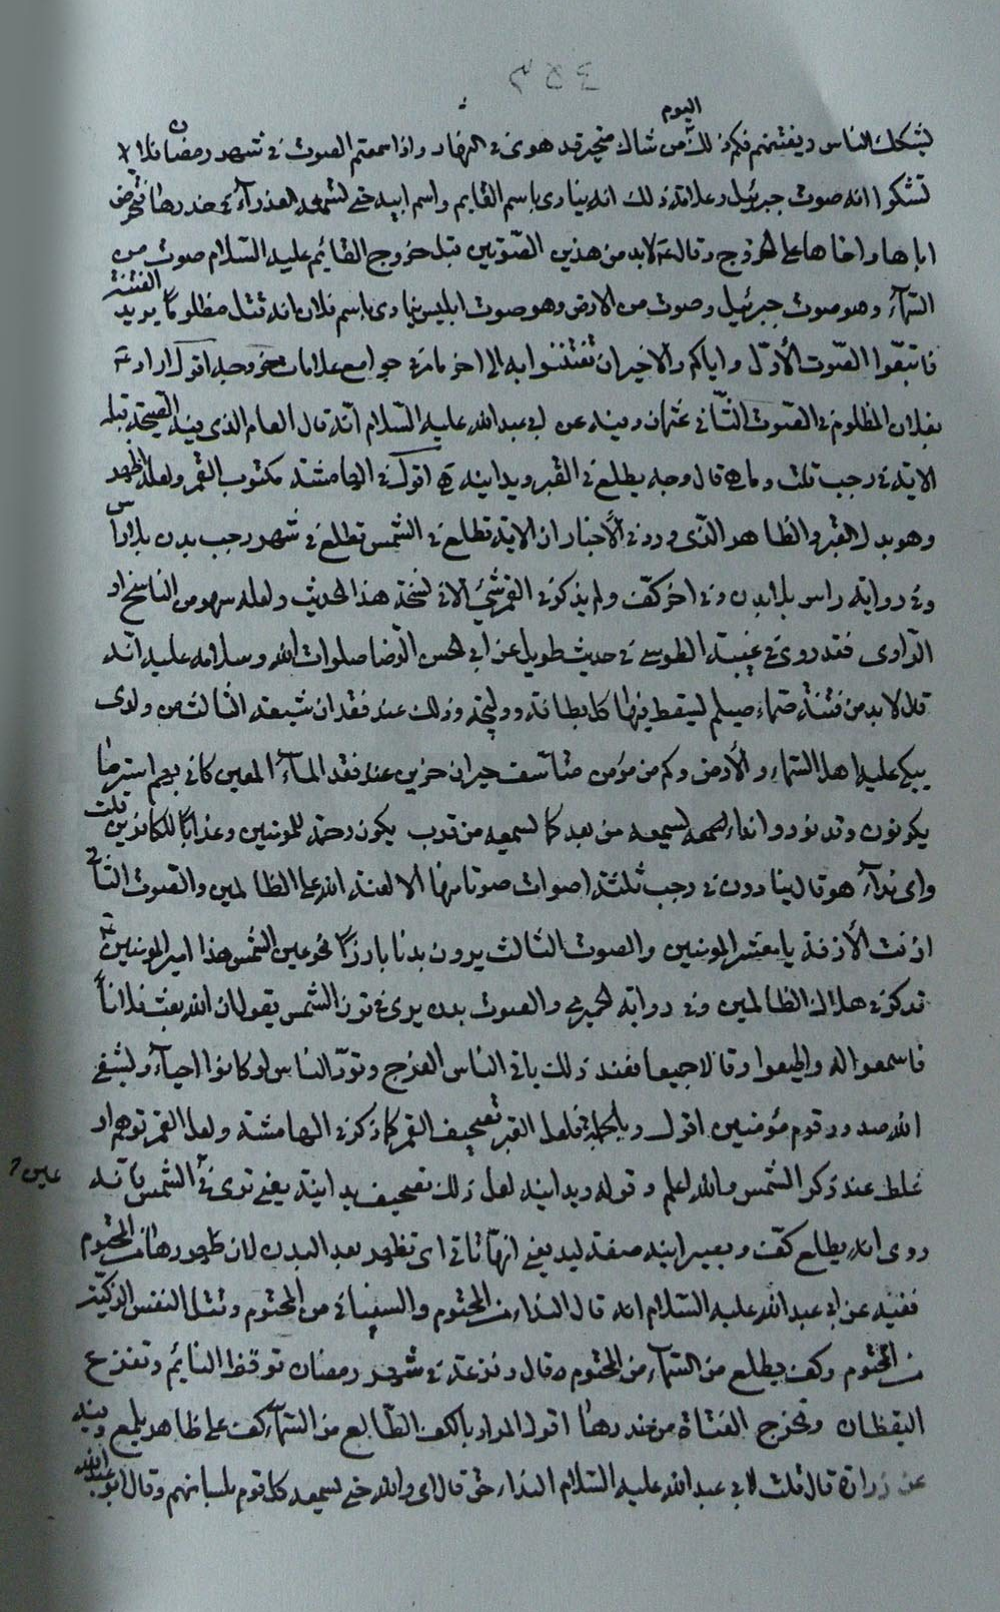 ٤٥٣
ليشكك الناس ويفتنهم فكم ذلك اليوم من شاك متحير قد هوى في النار واذا سمعتم الصوت في شهر رمضان فلا
تشكوا انه صوت جبرئيل وعلامة ذلك انه ينادي باسم القايم واسم ابيه حتى تسمعه العذرآء في خدرها فتحرض
اباها واخاها على الخروج وقال ع لابد من هذين الصوتين قبل خروج القائم عليه السلام صوت من
السمآء وهو صوت جبرئيل وصوت من الارض وهو صوت ابليس ينادي باسم فلان انه قتل مظلوما يريد الفتنة
فاتبعوا الصوت الأول واياكم والاخير ان تفتتنوا به الى اخر ما في جوامع علامات خروجه اقول اراد ع
بفلان المظلوم في الصوت الثاني عثمان وفيه عن ابي عبد الله عليه السلام انه قال العام الذي فيه الصيحة قبله
الاية في رجب قلت وما هي قال وجه يطلع في القبر ويد ابينه اقول في الهامشة مكتوب القمر ولعله اظهر
وهو بدل القبر والظاهر الذي ورد في الأخبار ان الاية تطلع في الشمس تطلع في شهر رجب بدن بلا راس
وفي رواية راس بلا بدن وفي اخر كف ولم يذكر في القمر شيئ الا في نسخة هذا الحديث ولعله سهو من الناسخ او
الراوي فقد روى في غيبة الطوسي في حديث طويل عن ابي الحسن الرضا صلوات الله وسلامه عليه انه
قال لابد من فتنة صماء صيلم ليسقط فيها كل بطانة ووليجة وذلك عند فقدان شيعة الثالث من ولدى
يبكي عليه اهل السماء والأرض وكم من مؤمن متأسف حيران حزين عند فقد المآء المعين كاني بهم اسر ما
يكونون وقد نودوا نداء يسمعه من بعد كما يسمعه من قرب يكون رحمة للمؤمنين وعذابا للكافرين قلت
واي ندآء هو قال ينادون في رجب ثلثة اصوات صوتا منها الا لعنة الله على الظالمين والصوت الثاني
ازفت الأزفة يا معشر المؤمنين والصوت الثالث يرون بدنا بارزا نحو عين الشمس هذا امير المؤمنين
قد كر في هلاك الظالمين وفي رواية الحميري والصوت بدن يرى في قرن الشمس يقول ان الله بعث فلانا
فاسمعوا له واطيعوا وقالا جميعا فعند ذلك ياتي الناس الفرج وتود الناس لو كانوا احيآء ويشفي
الله صدور قوم مؤمنين اقول وبالجملة فلعل القبر تصحيف القمر كما ذكر في الهامشة ولعل القمر توهم او
غلط عند ذكر الشمس والله اعلم وقوله ويد ابينه لعل ذلك تصحيف يد ابينة يعني ترى في عين الشمس فانه
روى انه يطلع كف ويصير ابينه صفة ليد يعني انها تاتي اي تظهر بعد البدن لان ظهورها من المحتوم
ففيه عن ابي عبد الله عليه السلام انه قال النداء من المحتوم والسفياني من المحتوم وقتل النفس الزكية
من المحتوم وكف يطلع من السمآء من المحتوم قال وفزعة في شهر رمضان توقظ النايم وتفزع
اليقظان وتخرج الفتاة من خدرها اقول المراد بالكف الطالع من السمآء كف على ظاهر يلمع وفيه
عن زرارة قال قلت لابي عبد الله عليه السلام النداء حق قال اي والله حتى يسمعه كل قوم بلسانهم وقال ابو عبد الله